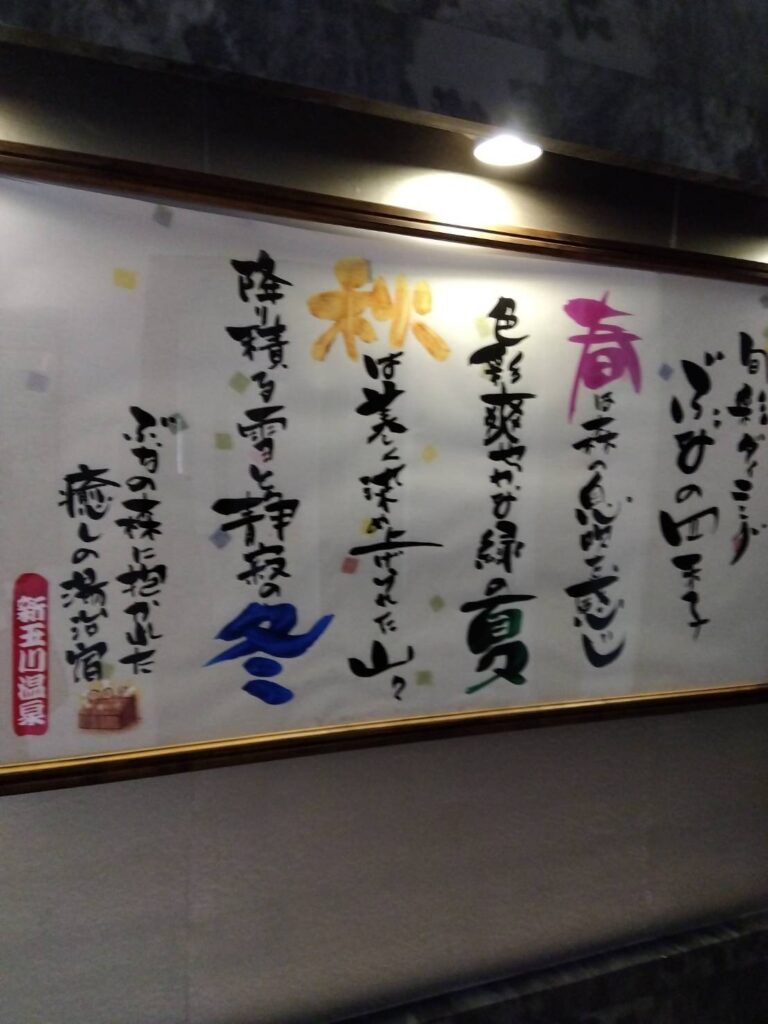 旬楽ダイニング
ぶなの四季
春は森の息吹を感じ
色彩爽やかな緑の夏
秋は美しく染め上げられた山々
降り積る雪と静寂の冬
ぶなの森に抱かれた
癒しの湯治宿
新玉川温泉